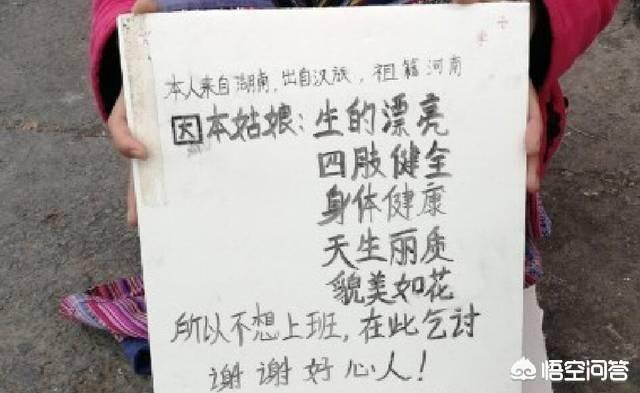 本人来自湖南,出自汉族,祖籍河南
因本姑娘:生的漂亮
四肢健全
身体健康
天生丽质
貌美如花
所以不想上班,在此乞讨
谢谢好心人!
悟空问答